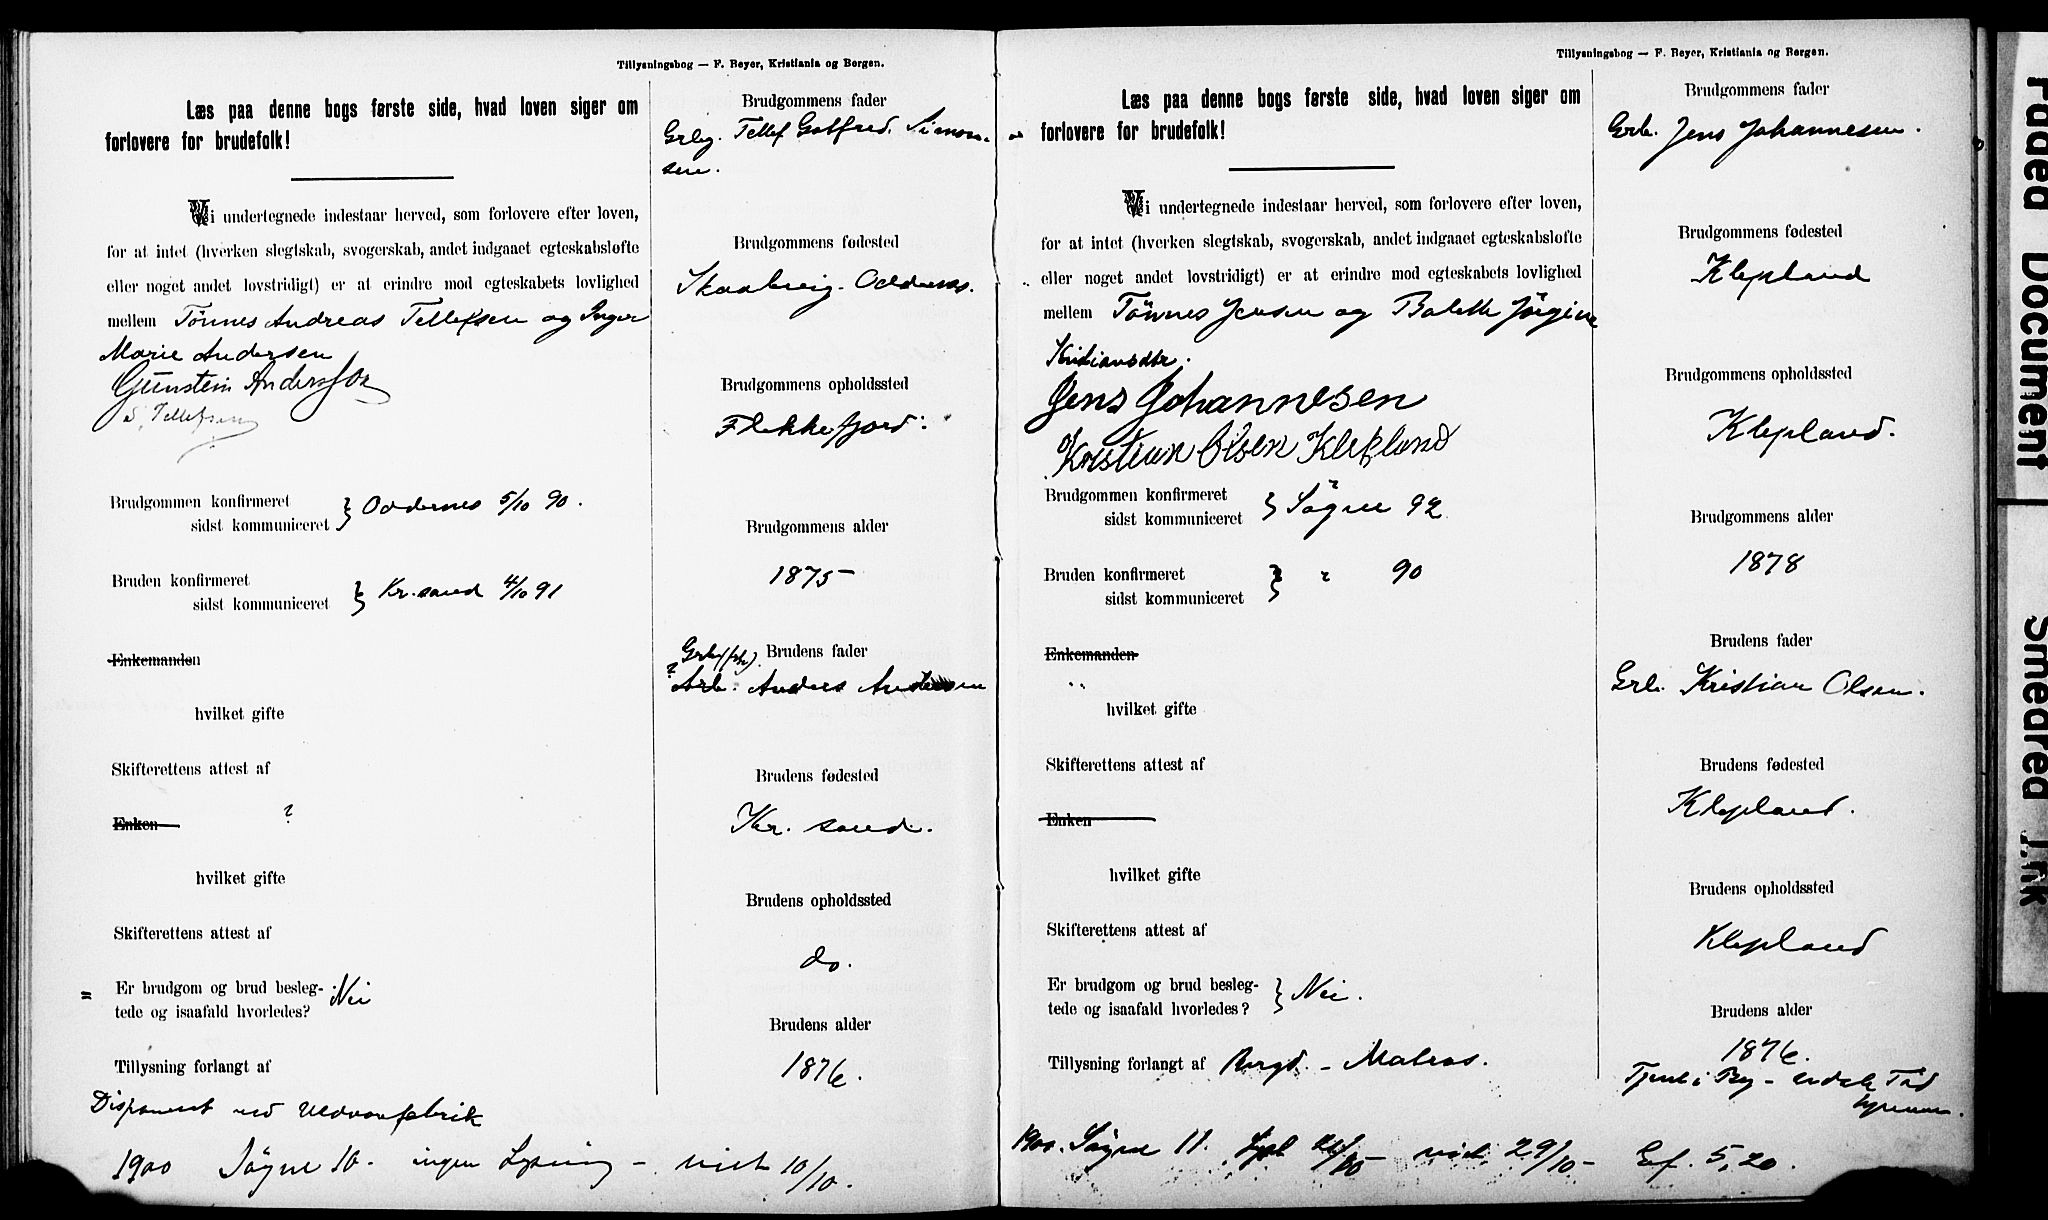 Tillysningsbog — F. Beyer, Kristiania og Bergen.
Læs paa denne bogs første side, hvad loven siger om
forlovere for brudefolk!
Vi undertegnede indestaar herved, som forlovere efter loven,
for at intet (hverken slegtskab, svogerskab, andet indgaaet egteskabsløfte
eller noget andet lovstridigt) er at erindre mod egteskabets lovlighed
mellem Tønnes Andreas Tellefsen og Inger
Marie Andersen
Gunstein Anderssen
S. Tellefsen
Brudgommen konfirmeret
sidst kommuniceret } Oddernes 5/10 90.
Bruden konfirmeret
sidst kommuniceret } Kr.sand 4/10 91
Enkemanden
hvilket gifte
Skifterettens attest af
Enken
hvilket gifte
Skifterettens attest af
Er brudgom og brud besleg-
tede og isaafald hvorledes? Nei
Tillysning forlangt af
Disponent ved Uldvarefabrik
1900 Søgne 10. ingen Lysning – viet 10/10.
Brudgommens fader
Grbg. Tellef Gotfred Simon-
sen.
Brudgommens fødested
Skaalevig. Oddernes.
Brudgommens opholdssted
Flekkefjord.
Brudgommens alder
1875
Brudens fader
Arb. Anders Andersen
Brudens fødested
Kr. sand.
Brudens opholdssted
do.
Brudens alder
1876.
Tillysningsbog — F. Beyer, Kristiania og Bergen.
Læs paa denne bogs første side, hvad loven siger om
forlovere for brudefolk!
Vi undertegnede indestaar herved, som forlovere efter loven,
for at intet (hverken slegtskab, svogerskab, andet indgaaet egteskabsløfte
eller noget andet lovstridigt) er at erindre mod egteskabets lovlighed
mellem Tønnes Jensen og Bolette Jørgine
Kristiansdtr.
Jens Johannesen
Kristian Olsen Klepland
Brudgommen konfirmeret
sidst kommuniceret } Søgne 92
Bruden konfirmeret
sidst kommuniceret } " 90
Enkemanden
hvilket gifte
Skifterettens attest af
Enken
hvilket gifte
Skifterettens attest af
Er brudgom og brud besleg-
tede og isaafald hvorledes? } Nei.
Tillysning forlangt af Brugd. – Matros.
1900. Søgne 11. Lyst 21/10 – viet 29/10 – Gf. 5,20.
Brudgommens fader
Grb. Jens Johannesen.
Brudgommens fødested
Klepland
Brudgommens opholdssted
Klepland.
Brudgommens alder
1878
Brudens fader
Grb. Kristian Olsen.
Brudens fødested
Klepland.
Brudens opholdssted
Klepland
Brudens alder
1876.
Tjent i By – Tid
Faded Document
Smeared Ink